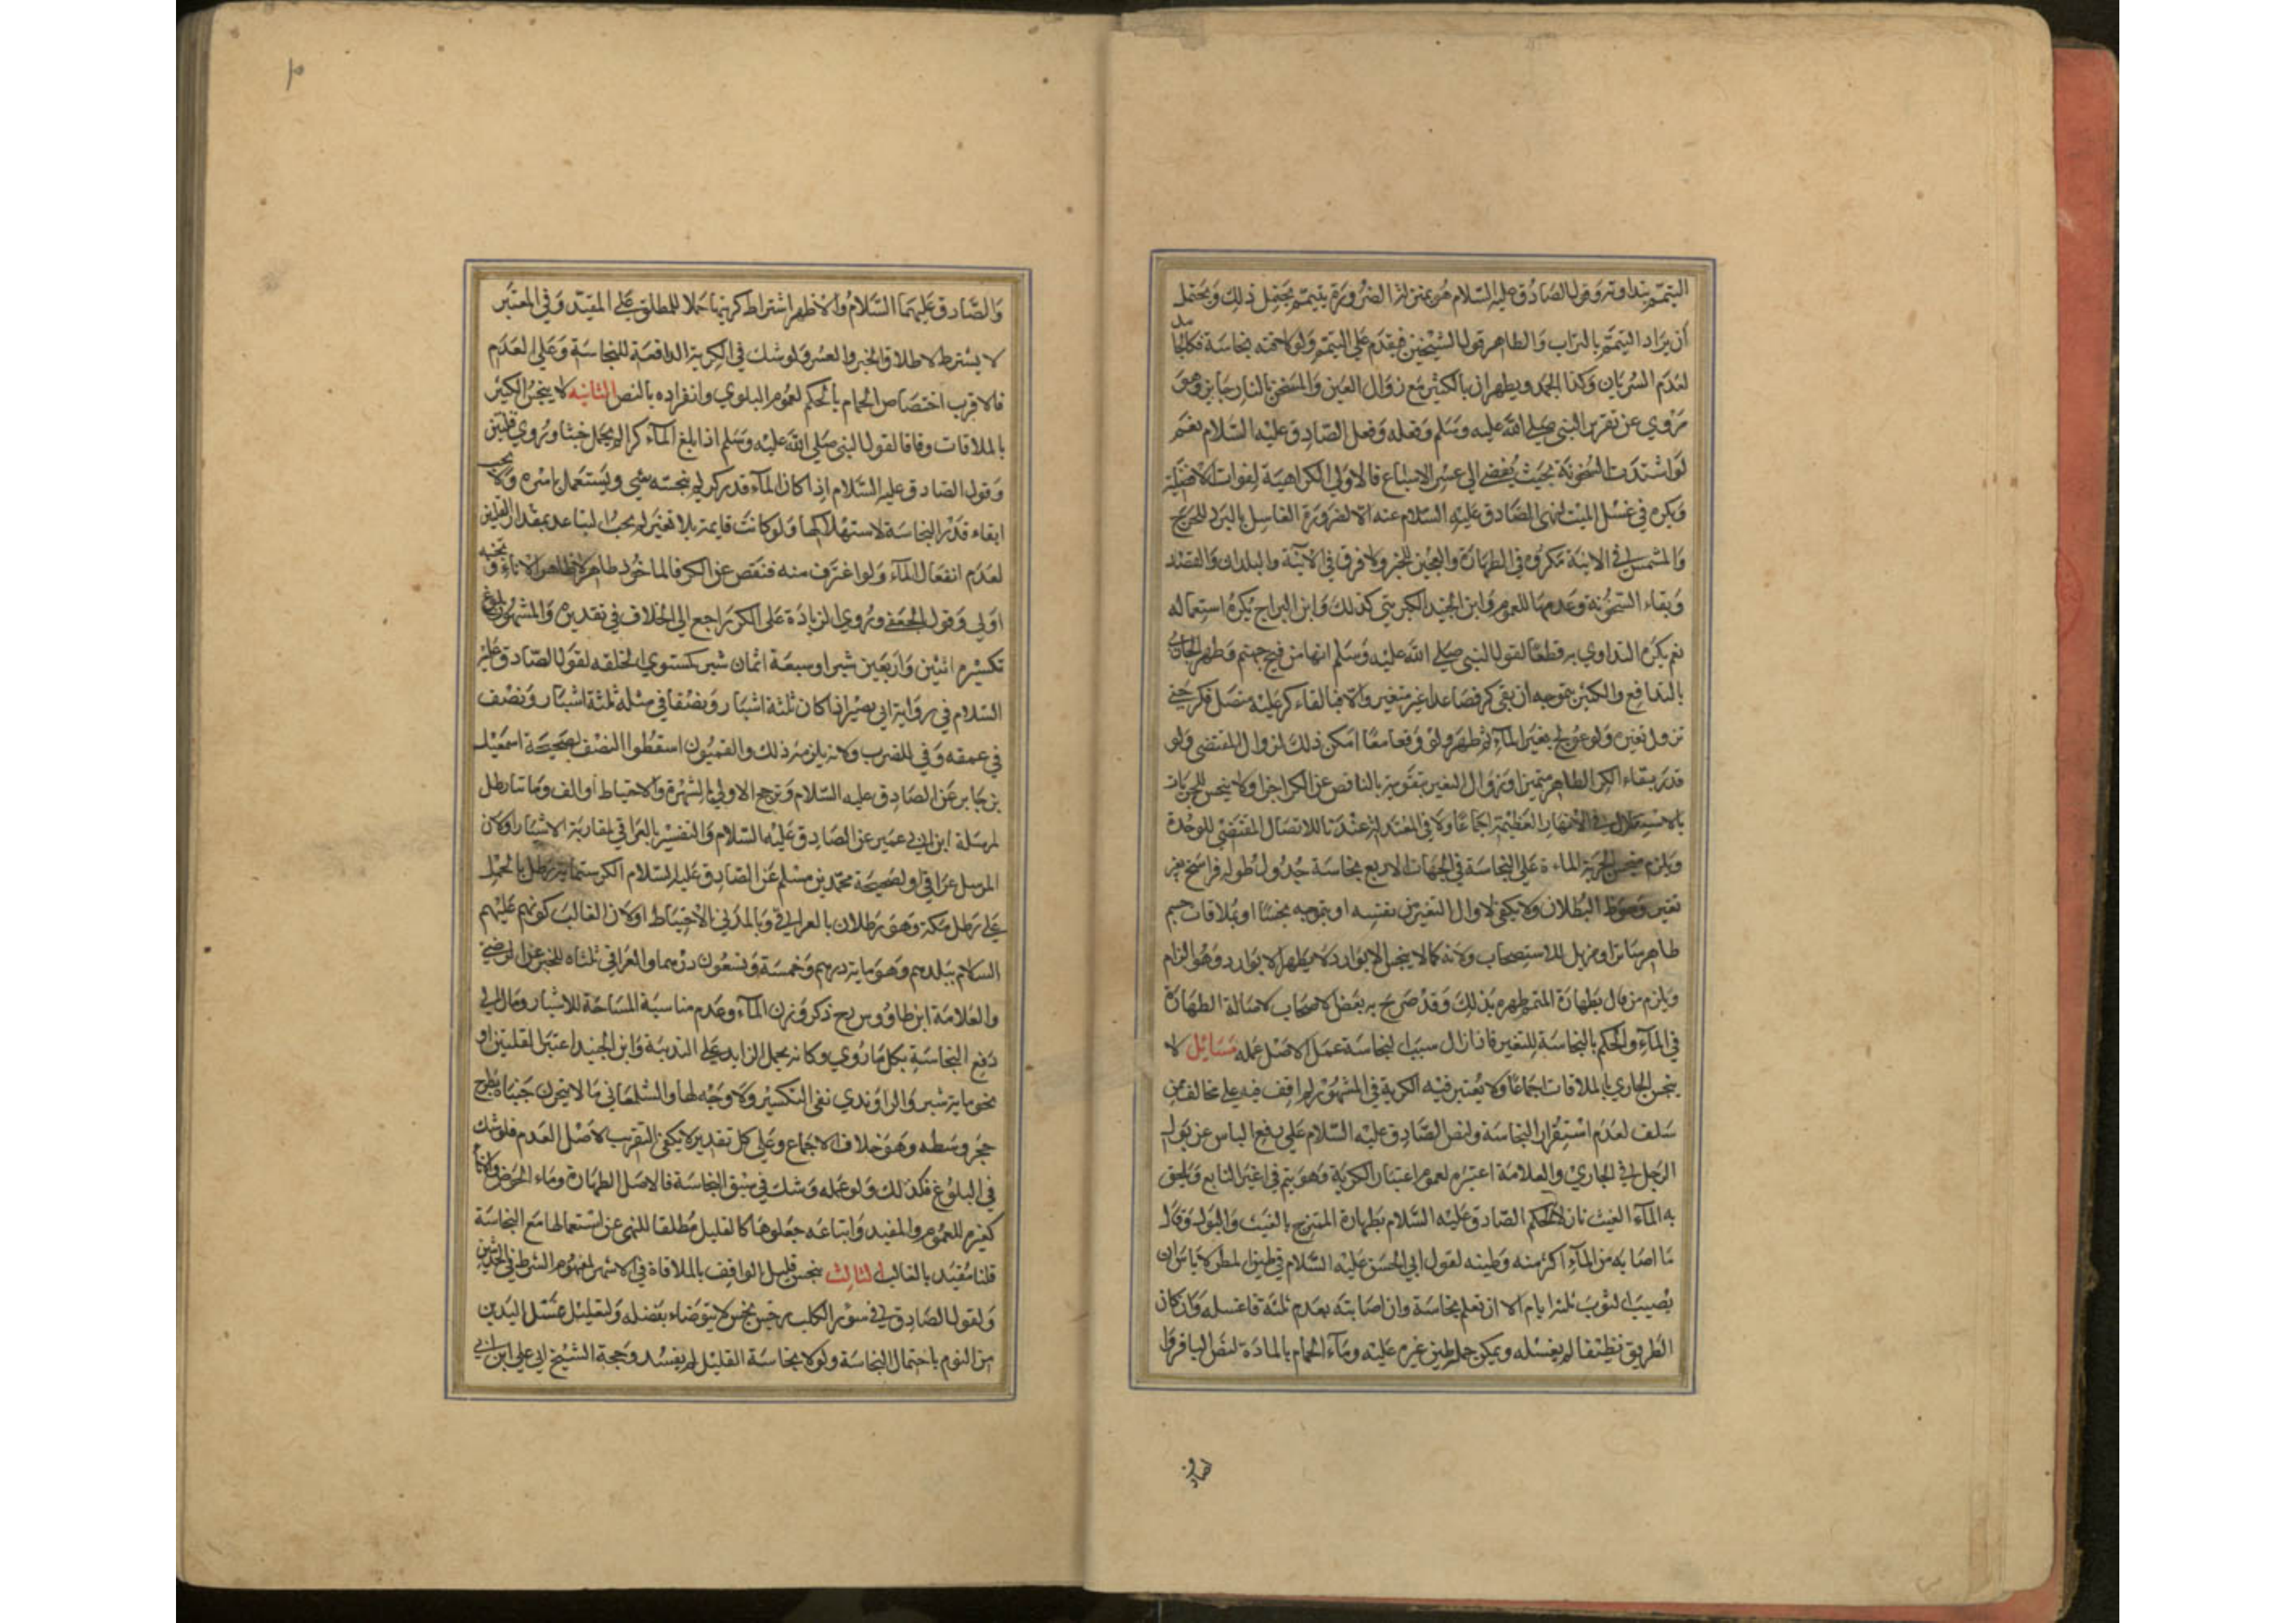 التيمم بنداوته وقول الصادق عليه السلام هو بمنزلة الضرورة يتيمم يحتمل ذلك ويحتمل
أن يراد التيمم بالتراب والظاهر قول الشيخين فيقدم على التيمم ولو لاقته نجاسة فكالجامد
لعدم السريان وكذا الجمد ويطهران بالكثير مع زوال العين والمسخن بالنار جايز وهو
مروي عن تقرير النبي صلى الله عليه وسلم وفعله وفعل الصادق عليه السلام نعم
لو اشتدت السخونة بحيث يفضي الى عسر الاسباغ فالاولى الكراهية لفوات الافضلية
ويكره في غسل الميت لنهي الصادق عليه السلام عنه الا لضرورة الغاسل بالبرد للحرج
والمشمس في الآنية مكروه في الطهارة والعجين للخبر ولا فرق في الآنية والبلدان والقصد
وبقاء السخونة وعدمها للعموم وابن الجنيد الكبريتي كذلك وابن البراج يكره استعماله
نعم يكره التداوي به قطعا لقول النبي صلى الله عليه وسلم انها من فيح جهنم وطهر الجاري
بالتدافع والكثير بتموجه ان بقي كر فصاعدا غير متغير والا فبالقاء كر عليه متصل فكر حتى
تزول تغيره ولو عولج بغير الماء لم يطهر ولو وقعا معا امكن ذلك لزوال المقتضي ولو
قدر بقاء الكر الطاهر متميزا وزوال التغير بتقويته بالناقص عن الكر اجزا ولا ينجس للجريات
بالاستقلال في الانهار العظيمة اجماعا ولا في المعتدلة عندنا للاتصال المقتضي للوحدة
ويلزم منجس الجرية المارة على النجاسة في الجهات الاربع نجاسة جدول طوله فراسخ بغير
تغير وهو ظ البطلان ولا يكفي زوال التغير من نفسه او بتموجه نجسا او بملاقات جسم
طاهر ساتر او مزيل للاستصحاب ولانه كما لا ينجس الا بوارد لا يطهر الا بوارد وهو الزام
ويلزم من قال بطهارة المتمم طهره بذلك وقد صرح به بعض الاصحاب لاصالة الطهارة
في الماء والحكم بالنجاسة للتغير فاذا زال سبب النجاسة عمل الاصل عمله مسائل لا
ينجس الجاري بالملاقات اجماعا ولا يعتبر فيه الكرية في المشهور لم اقف فيه على مخالف ممن
سلف لعدم استقرار النجاسة ولنص الصادق عليه السلام على رفع الباس عن بول
الرجل في الجاري والعلامة اعتبره لعموم اعتبار الكرية وهو يتم في غير النابع ويلحق
به الماء الغيث نازلا لحكم الصادق عليه السلام بطهارة الممتزج بالغيث والبول وقال
ما اصابه من الماء اكثر منه وطينه لقول ابي الحسن عليه السلام في طين المطر لا باس ان
يصيب الثوب ثلثة ايام الا ان تعلم نجاسة وان اصابته بعد ثلثة فاغسله وان كان
الطريق نظيفا لم يغسله ويمكن حمل طين غيره عليه وماء الحمام بالمادة لنص الباقر وا
لصادق
والصادق عليهما السلام والاظهر اشتراط كريتها حملا للمطلق على المقيد وفي المعتبر
لا يشترط لاطلاق الخبر والعسر ولو شك في الكرية الدافعة للنجاسة وعلى العدم
فالاقرب اختصاص الحمام بالحكم لعموم البلوي وانفراده بالنص الثانيه لا ينجس الكثير
بالملاقات وفاقا لقول النبي صلى الله عليه وسلم اذا بلغ الماء كرا لم يحمل خبثا وروي قلتين
وقول الصادق عليه السلام اذا كان الماء قدر كر لم ينجسه شي ويستعمل باسره ولا يجب
ابقاء قدر النجاسة لاستهلاكها ولو كانت قايمة بلا تغير لم يجب التباعد بمقدار القلتين
لعدم انفعال الماء ولو اغترف منه فنقص عن الكر فالماخوذ طاهر لا ظاهر الاناء وتحته
اولى وقول الجعفي وروي الزيادة على الكر راجع الى الخلاف في تقديره والمشهور بلوغ
تكسيره اثنين واربعين شبرا وسبعة اثمان شبر كستوي الخلقه لقول الصادق عليه
السلام في رواية ابي بصير اذا كان ثلثة اشبار ونصفا في مثله ثلثة اشبار ونصف
في عمقه وفي للضرب ولانه يلزم منه ذلك والقميون اسقطوا النصف لصحيحة اسمعيل
بن جابر عن الصادق عليه السلام وترجح الاولى بالشهرة والاحتياط أو الف ومائتا رطل
لمرسلة ابن ابي عمير عن الصادق عليه السلام والتفسير بالعراقي لمقاربة الاشبار او كان
المرسل عراقيا ولصحيحة محمد بن مسلم عن الصادق عليه السلام الكر ستمائة رطل بالحمل
على رطل مكة وهو رطلان بالعراقي وبالمدني بالاحتياط او لان الغالب كونهم عليهم
السلام ببلدهم وهو ماية درهم وخمسة وتسعون درهما والعراقي ثلثاه للخبر عن الرضي
والعلامة ابن طاووس رح ذكر وزن الماء وعدم مناسبة المساحة للاشبار ومال الى
دفع النجاسة بكل ما روي وكانه يحمل الزايد على الندبية وابن الجنيد اعتبر القلتين او
نحو ماية شبر والراوندي نفى التكسير ولا وجه لها والشلمغاني ما لا يتحرك جنباه بطرح
حجر وسطه وهو خلاف الاجماع وعلى كل تقدير لا يكفي التقريب لاصل العدم فلو شك
في البلوغ فكذلك ولو علمه وشك في سبق النجاسة فالاصل الطهارة وماء الحوض والاناء
كغيره للعموم والمفيد واتباعه جعلوها كالقليل مطلقا للنهي عن استعمالها مع النجاسة
قلنا مقيد بالغالب الثالث ينجس قليل الواقف بالملاقاة في الاشهر لمفهوم الشرط في الحديثين
ولقول الصادق في سؤر الكلب رجس نجس لا يتوضاء بفضله ولتعليل غسل اليدين
من النوم باحتمال النجاسة ولولا نجاسة القليل لم يفسد وحجة الشيخ ابي علي ابن ابي